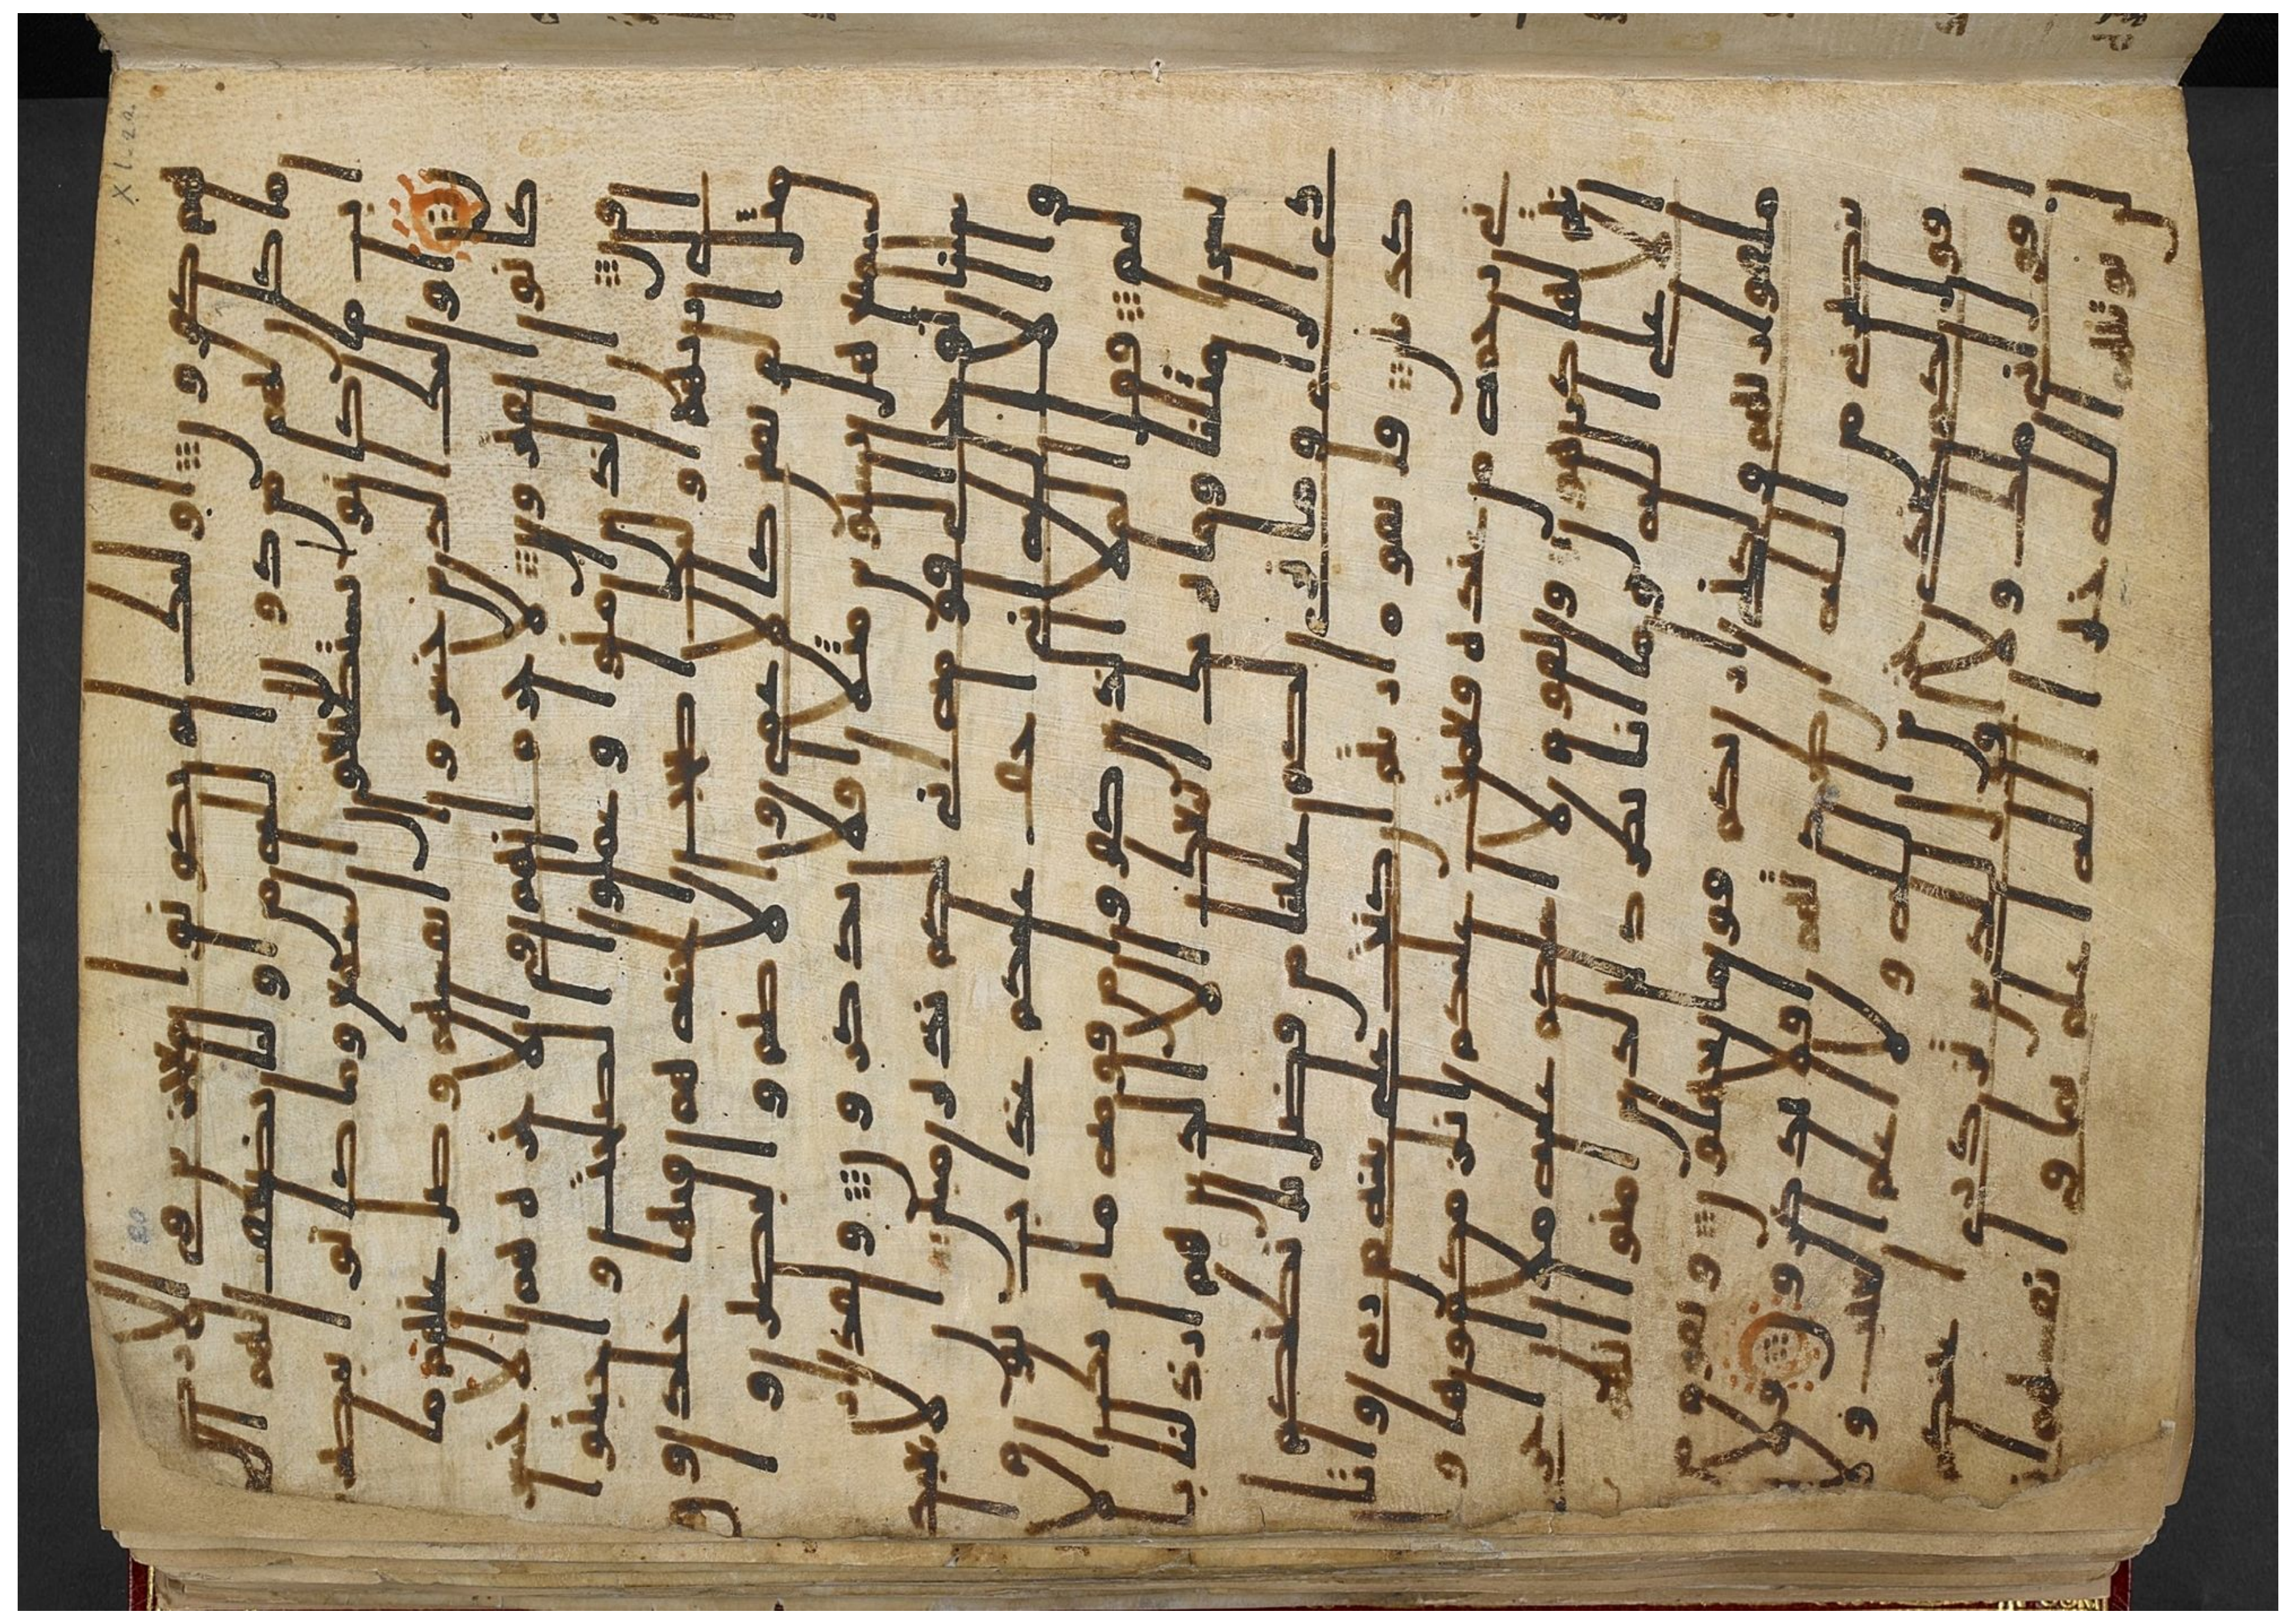 هم كفرون اولئك لم يكونوا معجزين في الارض و
ما كان لهم من دون الله من اوليا يضعف لهم ا
لعذاب ما كانوا يستطيعون السمع وما كانوا يبصر
ون اولئك الذين خسروا انفسهم وضل عنهم ما
كانوا يفترون لا جرم انهم في الاخرة هم الاخسر
ون ان الذين امنوا وعملوا الصلحت واخبتوا ا
لى ربهم اولئك اصحب الجنه هم فيها خلدون
مثل الفريقين كالاعمى والاصم والبصير و
السميع هل يستوين مثلا افلا تذكرون ولقد ار
سلنا نوحا الى قومه اني لكم نذير مبين ان لا تعبد
وا الا الله اني اخاف عليكم عذاب يوم ا
ليم فقال الملا الذين كفروا من قومه ما نريك الا
بشرا مثلنا وما نريك اتبعك الا الذين هم ارذلنا با
دي الراي وما نرى لكم علينا من فضل بل نظنكم
كذبين قال يقوم ارايتم ان كنت على بينه من ربي واتا
ني رحمه من عنده فعميت عليكم انلزمكموها و
انتم لها كرهون ويقوم لا اسلكم عليه مالا ان اجري
الا على الله وما انا بطرد الذين امنوا انهم
ملقوا ربهم ولكني اريكم قوما تجهلون ويقوم م
ن ينصرني من الله ان طردتهم افلا تذكرون ولا
اقول لكم عندي خزاين الله ولا اعلم الغيب و
لا اقول اني ملك ولا اقول للذين تزدري اعينكم
لن يوتيهم الله خيرا الله اعلم بما في انفسهم